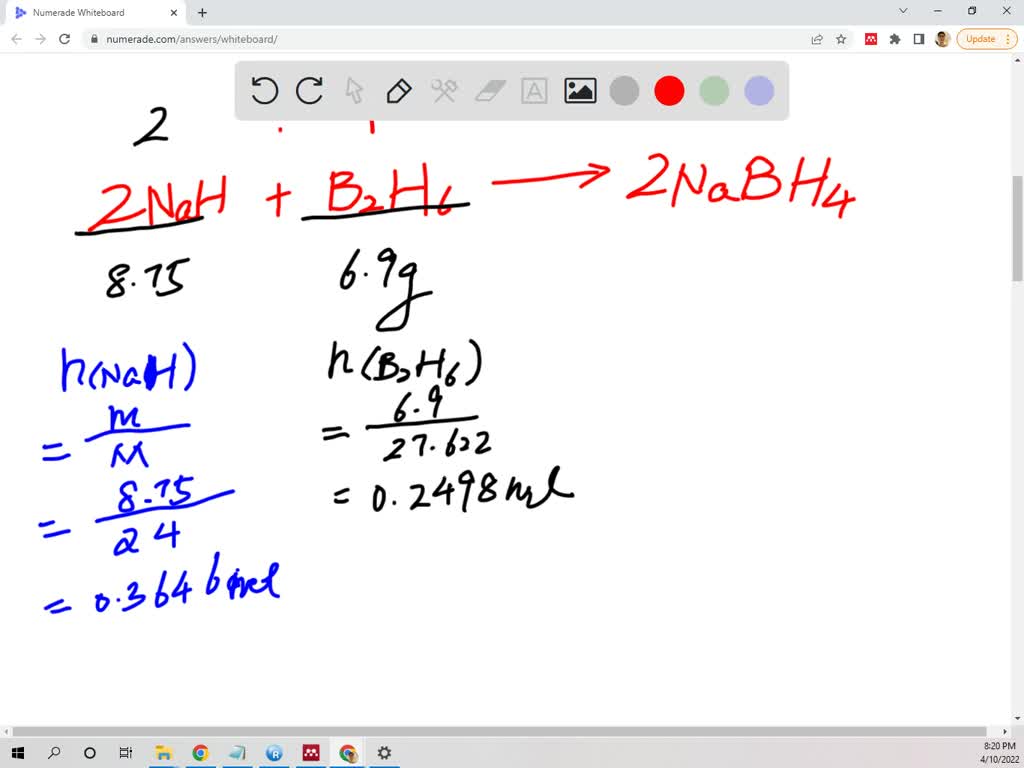 Numerade Whiteboard
numerade.com/answers/whiteboard/
Update
A
2
2NaH + B₂H₆ → 2NaBH₄
8.75 6.9g
n(NaH) n(B₂H₆)
= m/M = 6.9/27.622
= 8.75/24 = 0.2498 mol
= 0.3646 mol
8:20 PM
4/10/2022